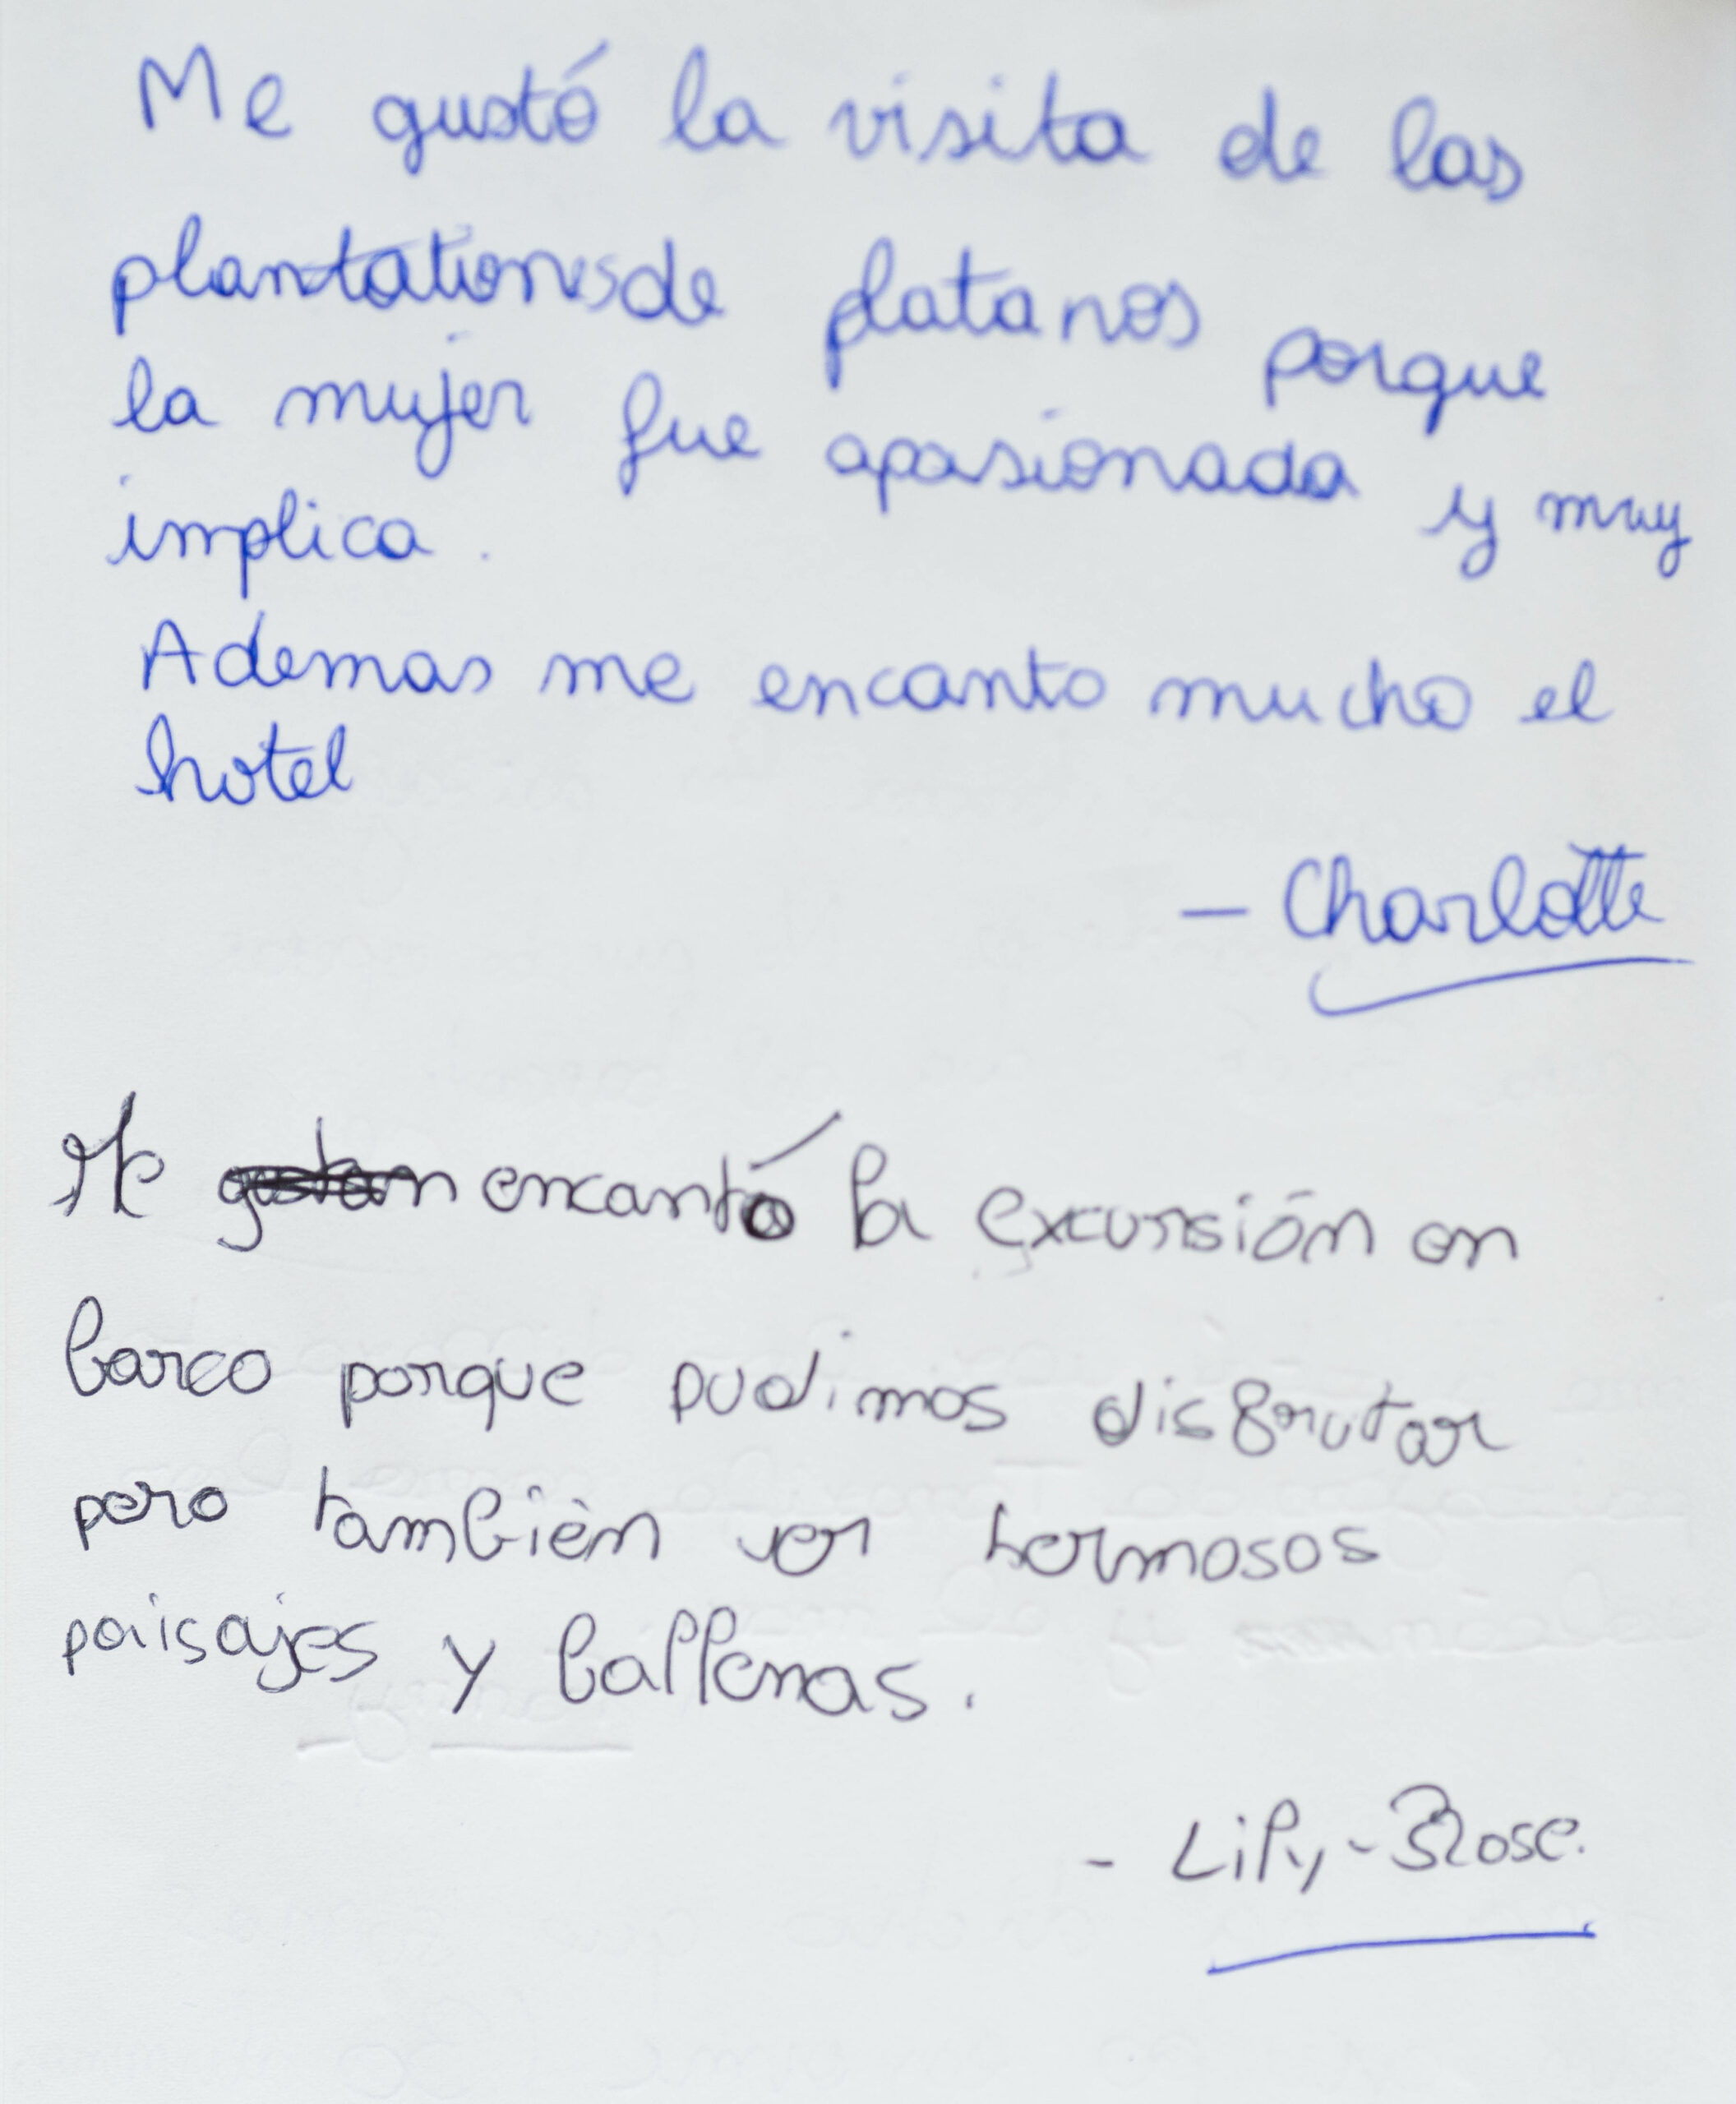 Me gustó la visita de las
plantationes de platanos porque
la mujer fue apasionada y muy
implica.
Ademas me encanto mucho el
hotel
— Charlotte
Me gustan encantó la excursión en
barco porque pudimos disfrutar
pero tambièn ver hermosos
paisajes y ballenas.
- Lily-Rose.